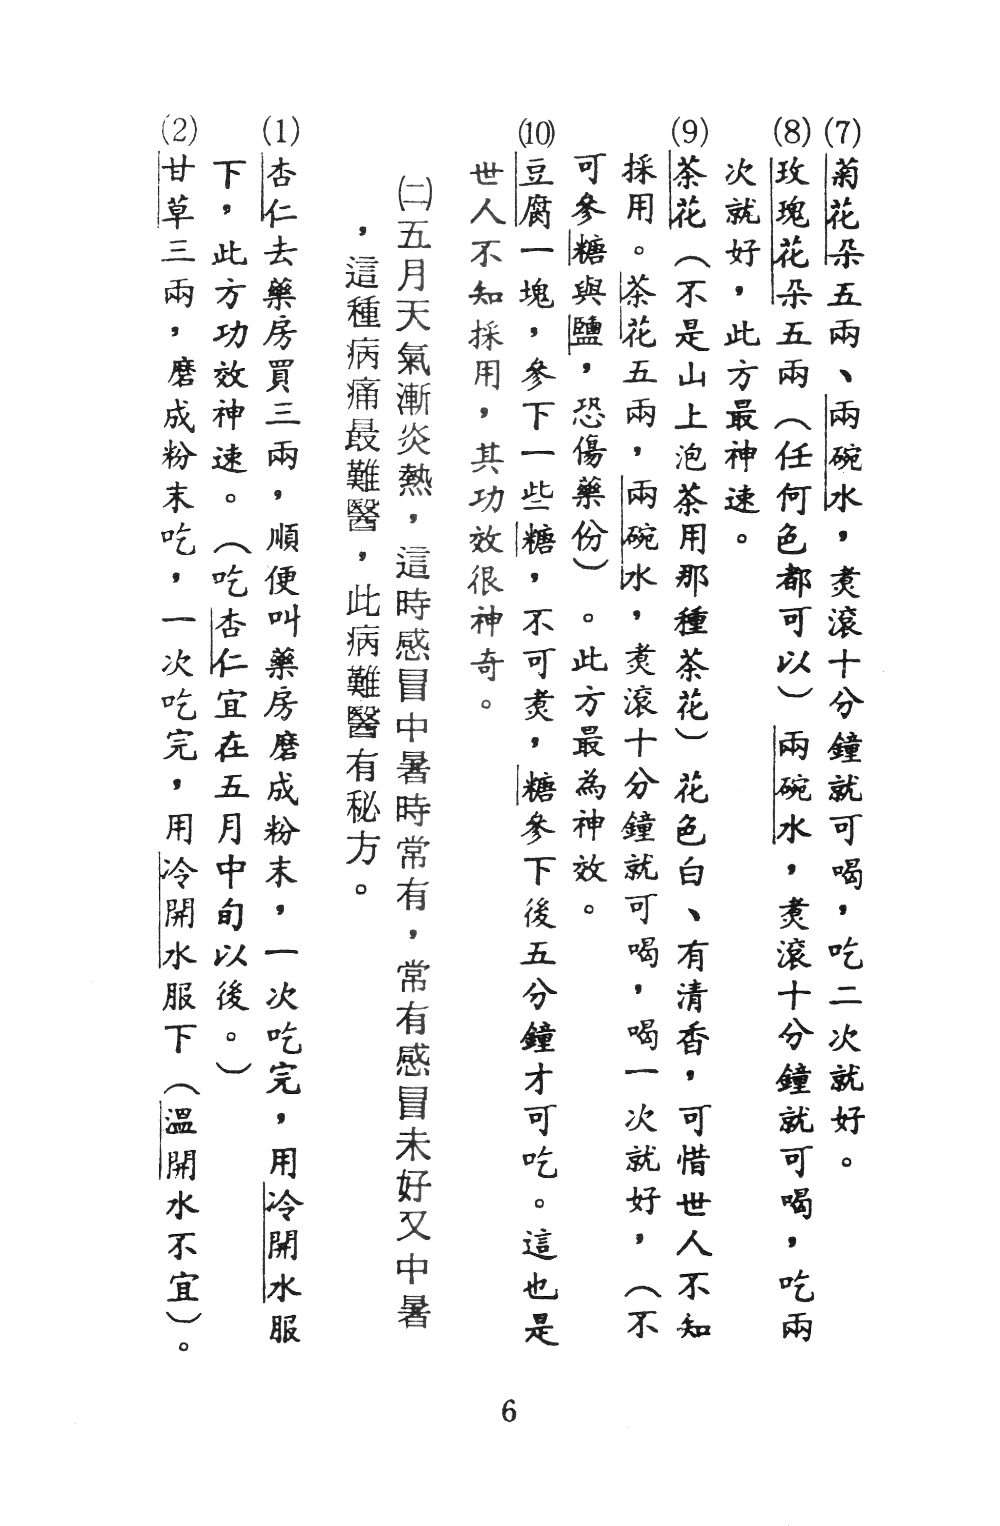 (7)菊花朵五兩、兩碗水，煑滾十分鐘就可喝，吃二次就好。
(8)玫瑰花朵五兩（任何色都可以）兩碗水，煑滾十分鐘就可喝，吃兩
次就好，此方最神速。
(9)茶花（不是山上泡茶用那種茶花）花色白、有清香，可惜世人不知
採用。茶花五兩，兩碗水，煑滾十分鐘就可喝，喝一次就好，（不
可參糖與鹽，恐傷藥份）。此方最為神效。
(10)豆腐一塊，參下一些糖，不可煑，糖參下後五分鐘才可吃。這也是
世人不知採用，其功效很神奇。
㈡五月天氣漸炎熱，這時感冒中暑時常有，常有感冒未好又中暑
，這種病痛最難醫，此病難醫有秘方。
(1)杏仁去藥房買三兩，順便叫藥房磨成粉末，一次吃完，用冷開水服
下，此方功效神速。（吃杏仁宜在五月中旬以後。）
(2)甘草三兩，磨成粉末吃，一次吃完，用冷開水服下（溫開水不宜）。
6